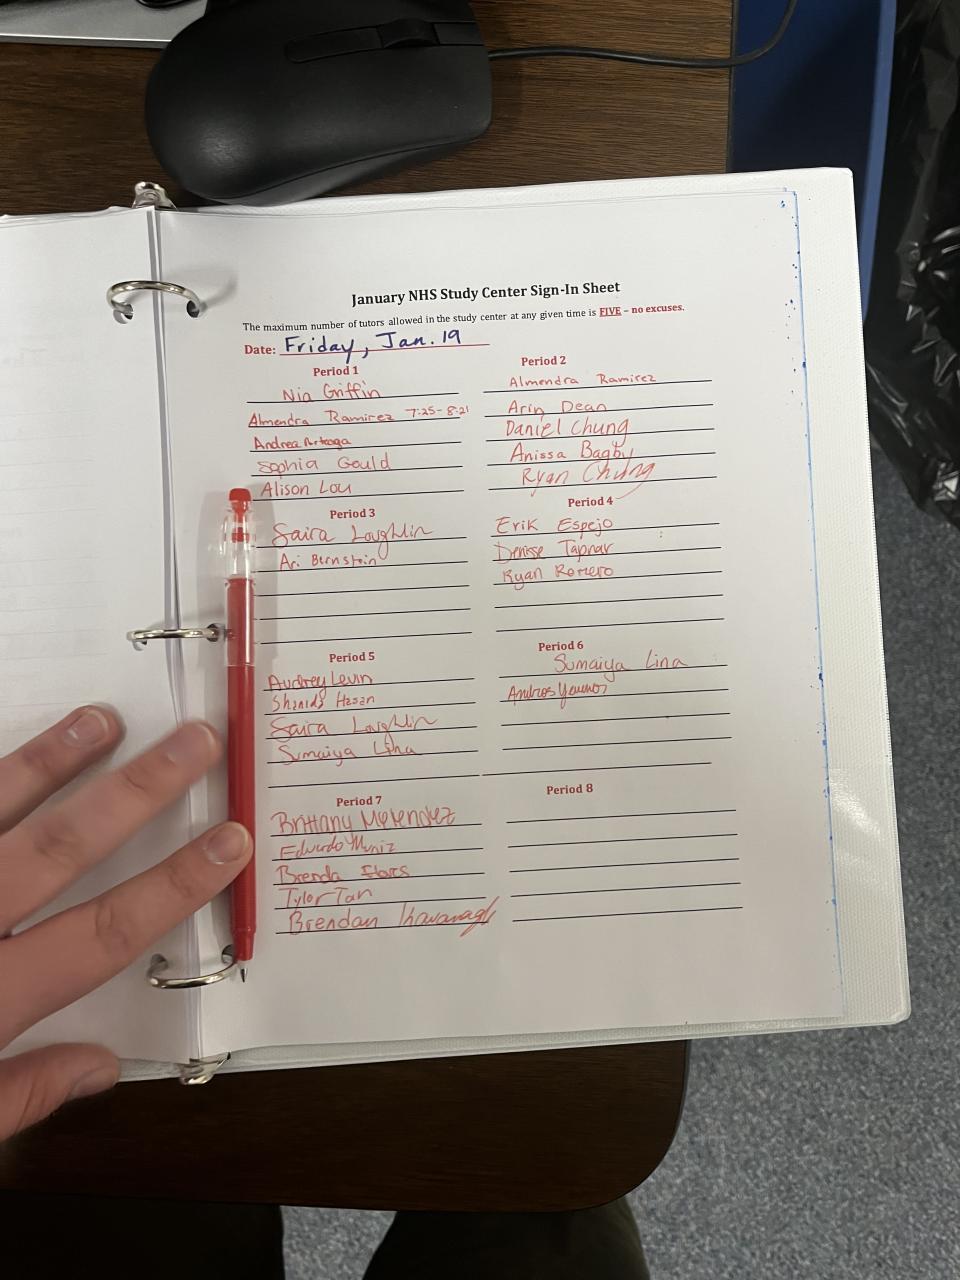 January NHS Study Center Sign-In Sheet
The maximum number of tutors allowed in the study center at any given time is FIVE – no excuses.
Date: Friday, Jan. 19
Period 1
Nia Griffin
Almendra Ramirez 7:25-8:21
Andrea Arteaga
Sophia Gould
Alison Lou
Period 2
Almendra Ramirez
Arin Dean
Daniel Chung
Anissa Bagby
Ryan Chung
Period 3
Saira Loughlin
Ari Bernstein
Period 4
Erik Espejo
Denisse
Ryan Romero
Period 5
Audrey Levin
Hasan
Saira Loughlin
Sumaiya Lina
Period 6
Sumaiya Lina
Period 7
Brittany Melendez
Eduardo Muniz
Brenda
Tyler Tan
Brendan Kavanagh
Period 8